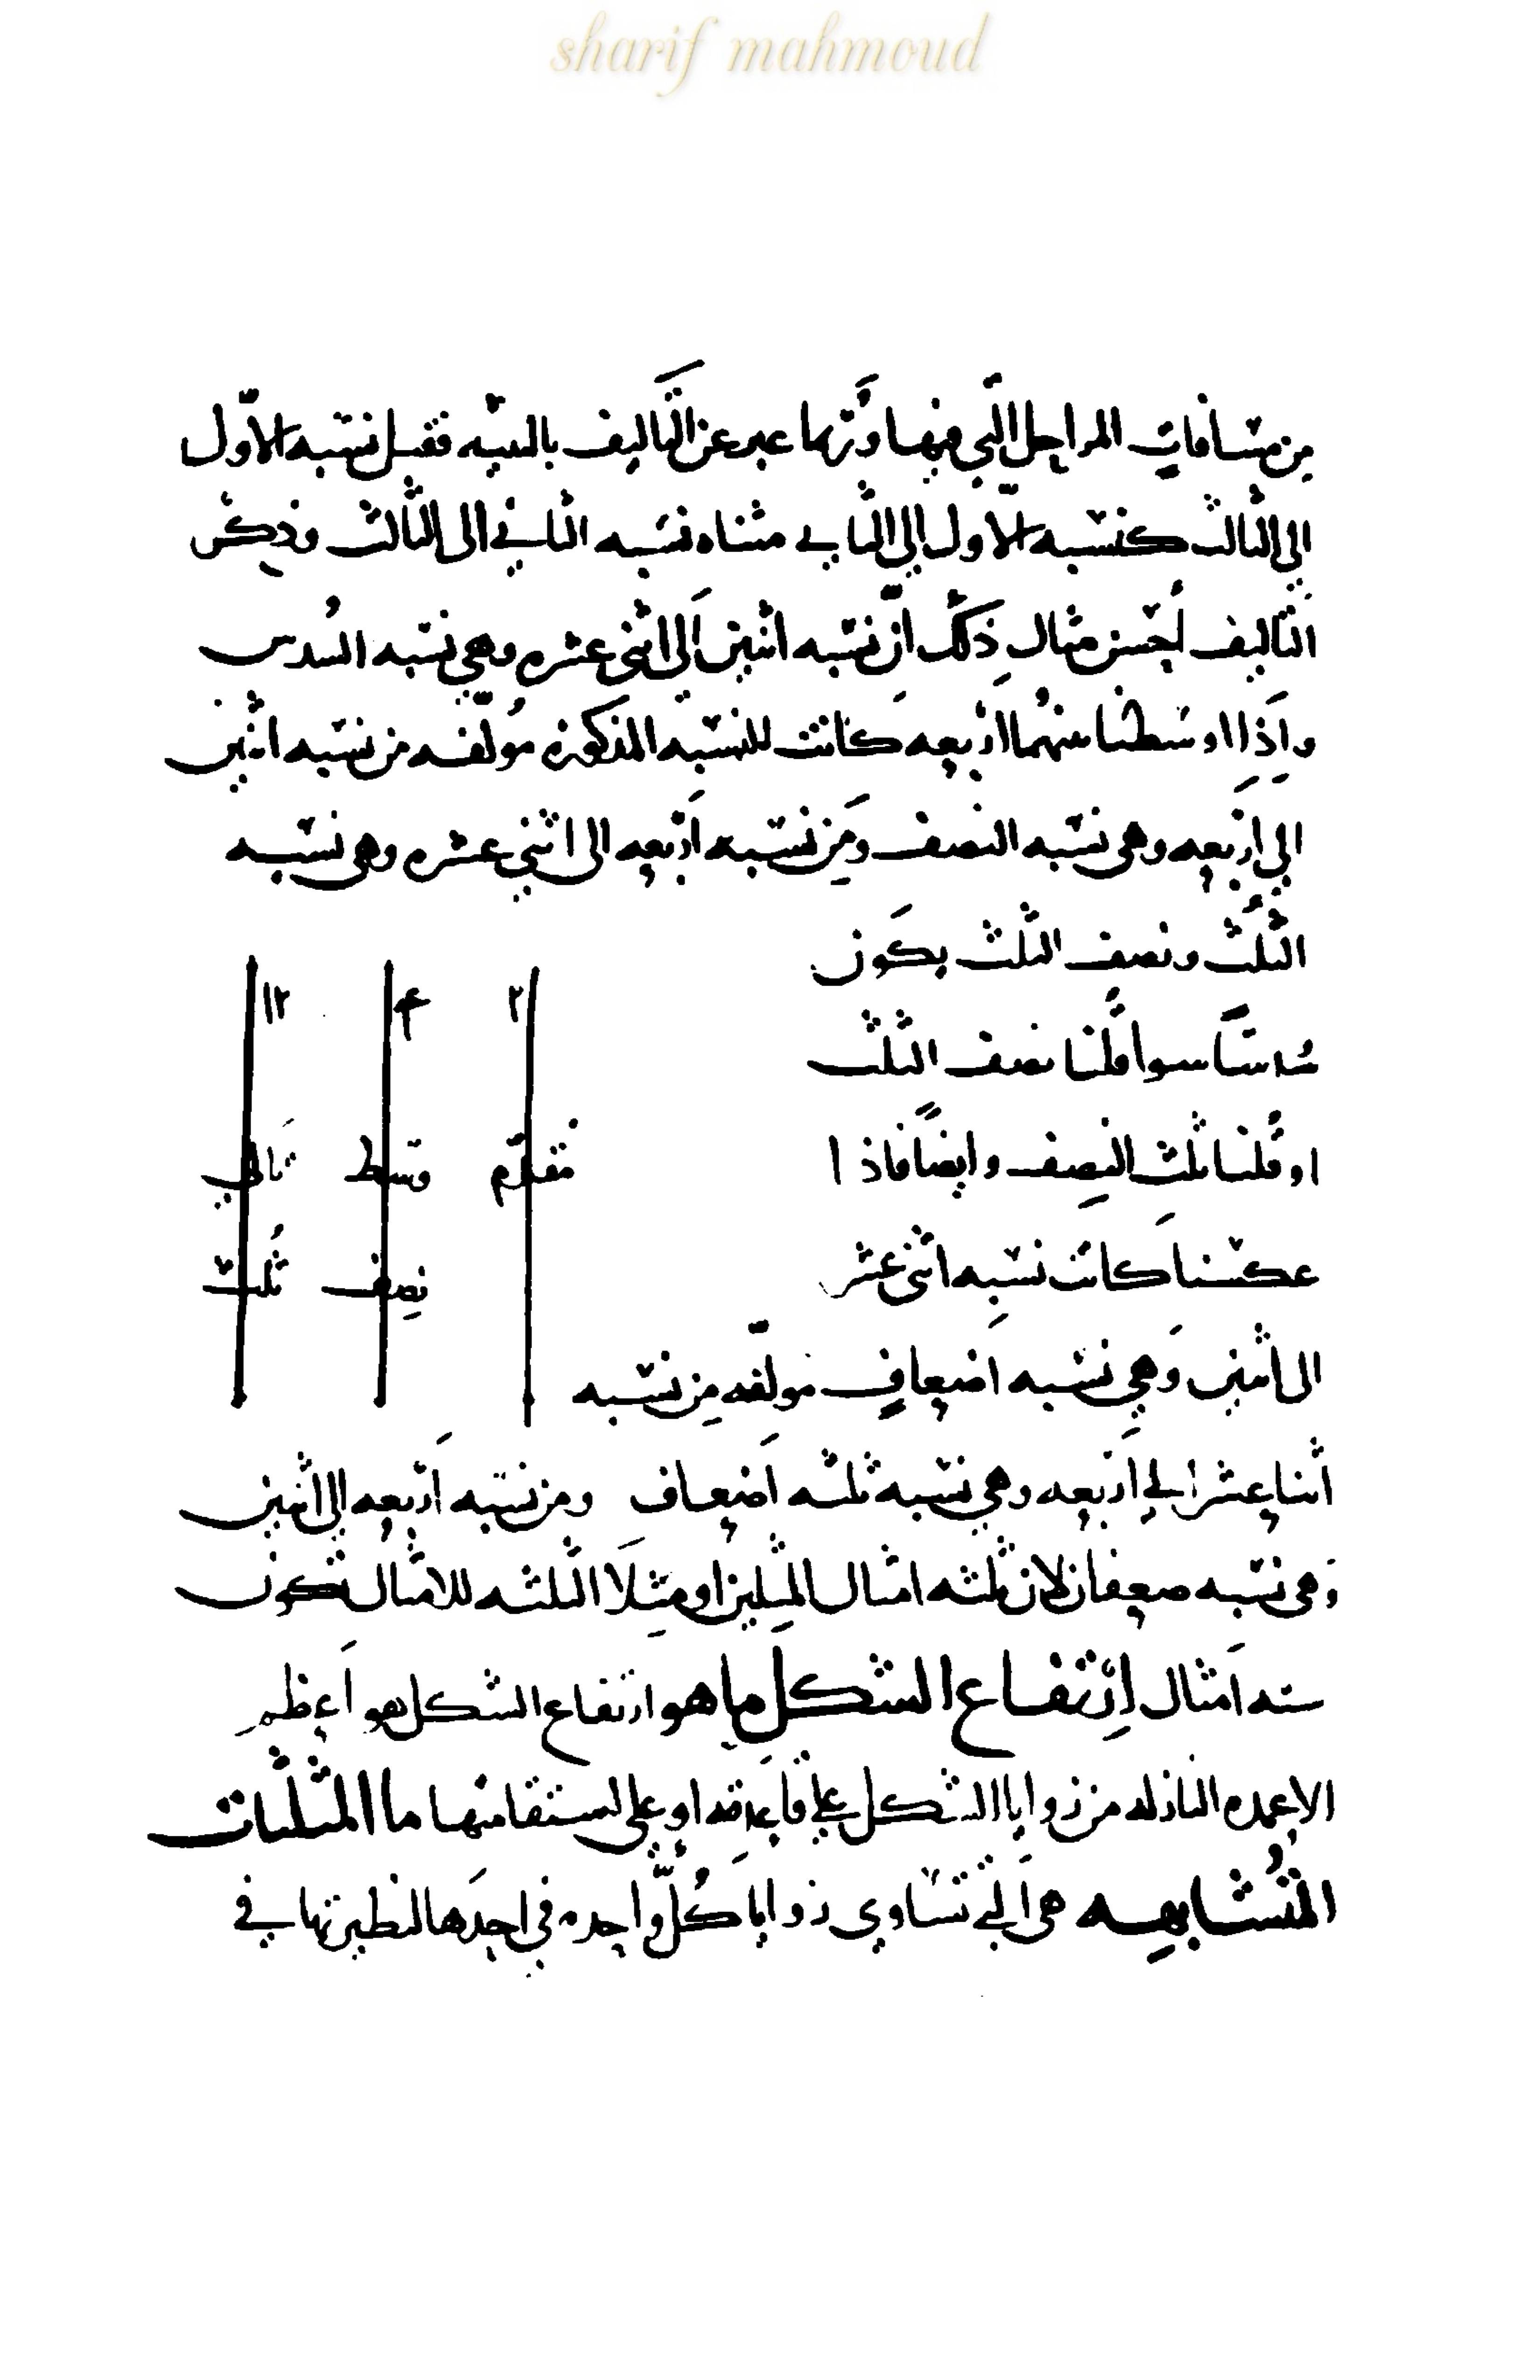 sharif mahmoud
من مسافات المراحل التي فيها وربما عبر عن التاليف بالتثنيه فقيل نسبه الاول
الى الثالث كنسبه الاول الى الثاني مثناه نسبه الثاني الى الثالث وذكر
التاليف احسن مثال ذلك ان نسبه اثنين الى اثنى عشره وهي نسبه السدس
واذا اوسطنا بينهما اربعه كانت للنسبه المذكوره مولفه من نسبه اثنين
الى اربعه وهى نسبه النصف ومن نسبه اربعه الى اثنى عشره وهى نسبه
الثلث ونصف الثلث يكون
سدسا سوا قلنا نصف الثلث
او قلنا ثلث النصف وايضا فاذا
عكسنا كانت نسبه اثنى عشر
الى اثنين وهي نسبه اضعاف مولفه من نسبه
٢ ۴ ١٢
متقدم وسط تالي
نصف ثلث
اثنا عشر الى اربعه وهي نسبه ثلثه اضعاف ومن نسبه اربعه الى اثنين
وهى نسبه ضعفان لان ثلثه امثال المثلين او مثلا الثلثه للامثال تكون
سته امثال ارتفاع الشكل ما هو ارتفاع الشكل هو اعظم
الاعمده النازله من زوايا الشكل على قاعدته او على استقامتها ما المثلثات
المتشابهه هى التي تساوي زوايا كل واحده في احدها لنظيرتها في